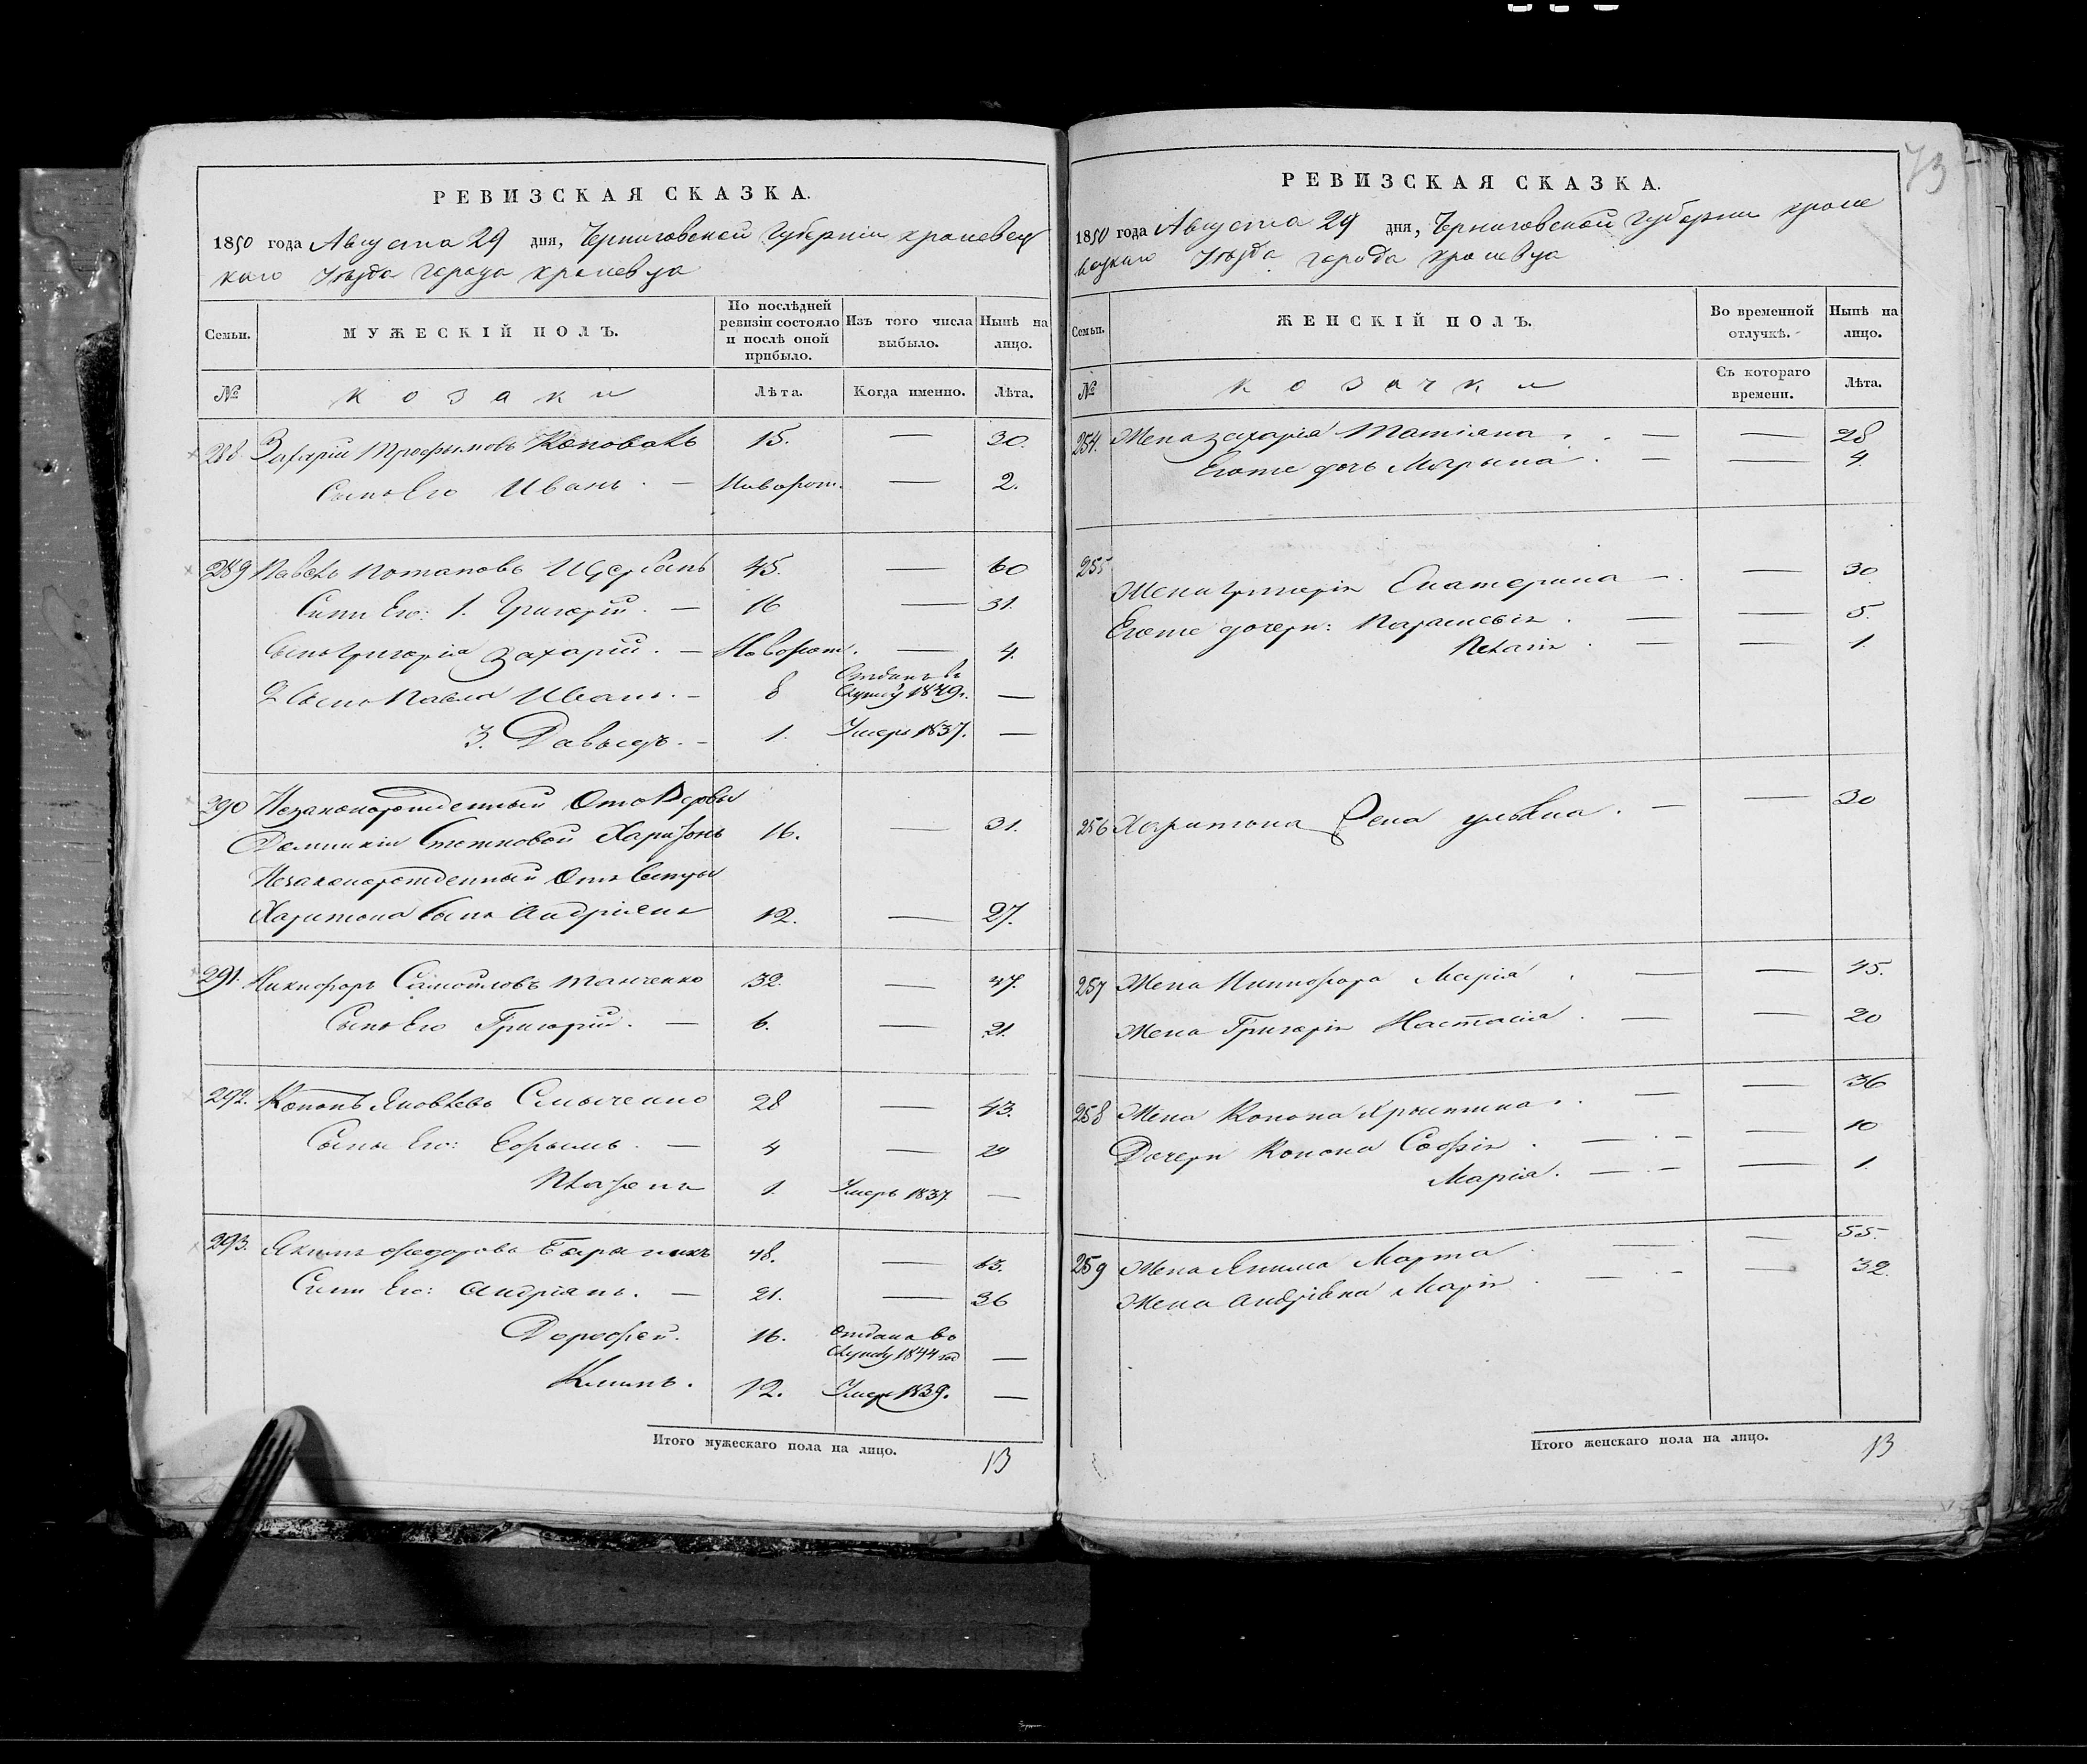 73
РЕВИЗСКАЯ СКАЗКА.
1850 года Августа 29 дня, Черниговской Губерніи кролевец
каго Уѣзда города кролевца
Семьи.
МУЖЕСКІЙ ПОЛЪ.
По послѣдней ревизіи состояло и послѣ оной прибыло.
Изъ того числа выбыло.
Нынѣ на лицо.
№
козаки
Лѣта.
Когда именно.
Лѣта.
288 Захарій Трофимовъ Коновалъ 15. — 30.
Сынъ Его Иванъ. — Новорож. — 2.
289 Павелъ Потаповъ Щербань 45. — 60
Сыни Его: 1. Григорій. — 16 — 31.
Сынъ Григорія Захарій. — Новорож. — 4.
2 Сынъ Павла Иванъ. — 8 Отданъ въ Службу 1849г. —
3. Давыдъ. — 1. Умеръ 1837. —
290 Незаконорожденный Отъ Вдовы
Харитонъ 16. — 31.
Незаконорожденный Отъ Сестры
Харитона Сынъ Андріянъ 12. — 27.
291. Никифоръ Самойловъ Танченко 32. — 47.
Сынъ Его Григорій. — 6. — 21.
292. Кононъ Яковлевъ 28 — 43.
Сыны Его: Ефымъ. — 4 — 29
1. Умеръ 1837. —
293. Якимъ Федоровъ 48. — 63.
Сыни Его: Андріянъ. — 21. — 36
Дорофей. 16. Отданъ въ Службу 1844 год —
Климъ. 12. Умеръ 1839. —
Итого мужескаго пола на лицо. 13
РЕВИЗСКАЯ СКАЗКА.
1850 года Августа 29 дня, Черниговской Губерніи кроле
вецкаго Уѣзда города кролевца
Семьи.
ЖЕНСКІЙ ПОЛЪ.
Во временной отлучкѣ.
Нынѣ на лицо.
№
козачки
Съ котораго времени.
Лѣта.
254. Жена Захарія Татіяна — — 28
Егоже дочь Мотрына — — 4.
255 Жена Григорія Екатерина — — 30
Егоже дочери: Парасковія — — 5.
Пелагія — — 1.
256 Харитона Жена Ульяна — — 30
257 Жена Никифора Марія — — 45.
Жена Григорія Настасія — — 20
258 Жена Конона Христина — — 36
Дочери Конона Софія — — 10
Марія. — — 1.
259 Жена Якима Марта — — 55.
Жена Андріяна Марія — — 32.
Итого женскаго пола на лицо. 13